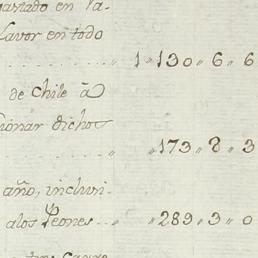 gastado en la-
lavor en todo
1„130„6„6
de Chile à
cionar dichos
„173„8„3
año, inclusi-
alos Peones..„ „289„3„0